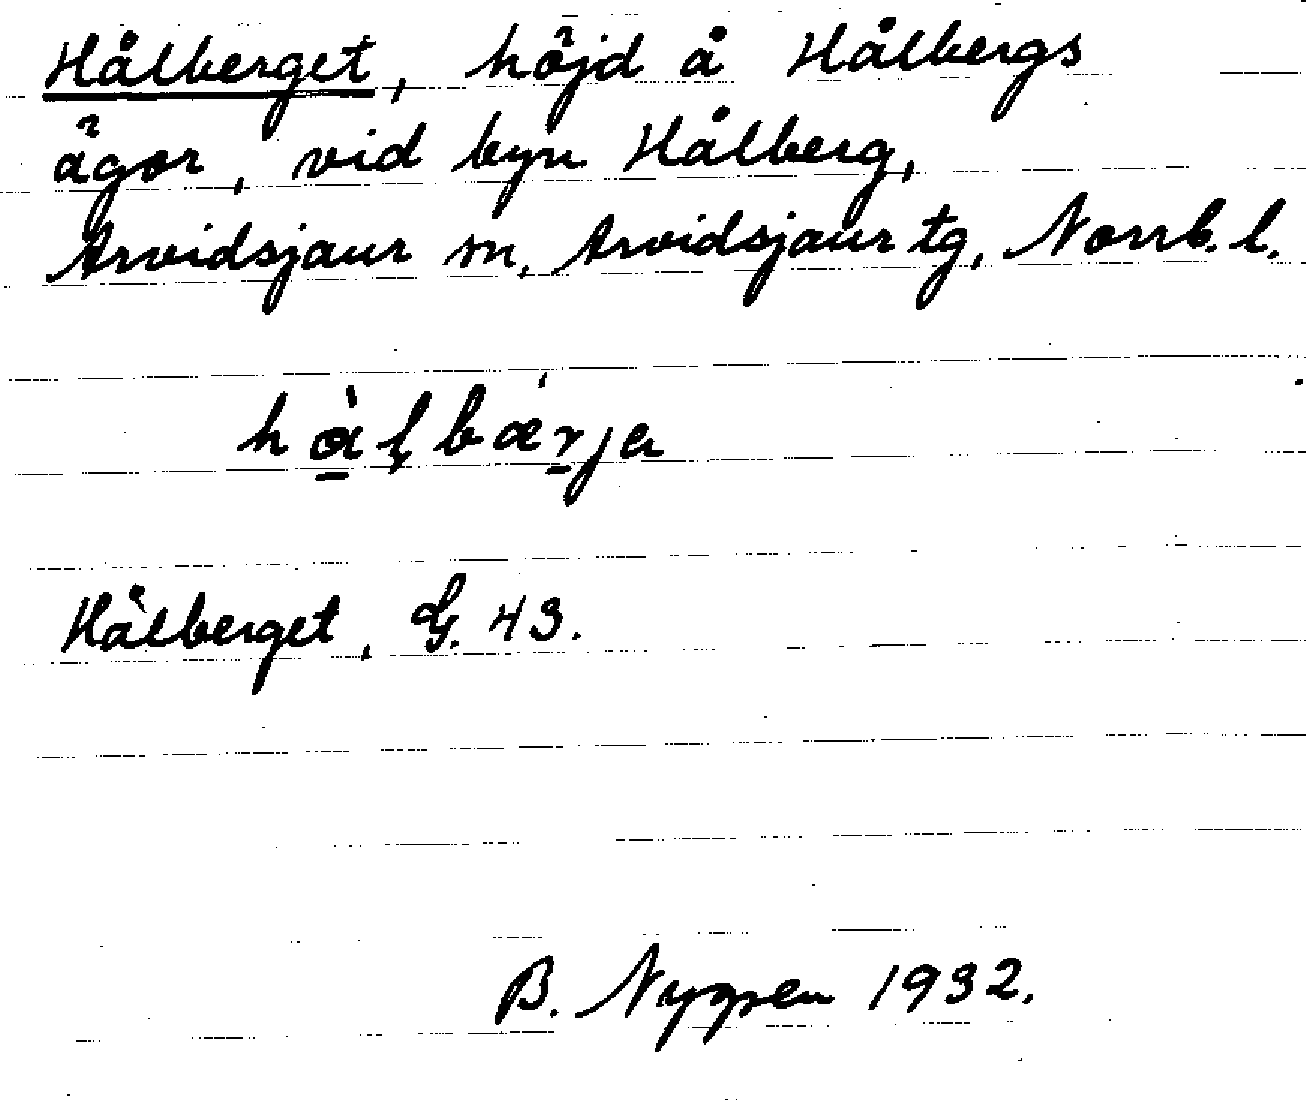 Hålberget, höjd å Hålbergs
ägor, vid byn Hålberg,
Arvidsjaur sn, Arvidsjaur tg, Norrb. l.
hå̀l̡bǽrja
Hålberget, G. 43.
B. Nygren 1932.